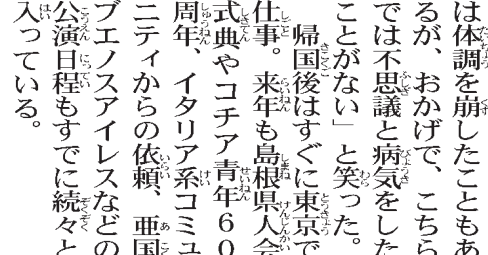 は体調を崩したこともあ
るが、おかげで、こちら
では不思議と病気をした
ことがない」と笑った。
帰国後はすぐに東京で
仕事。来年も島根県人会
式典やコチア青年60
周年、イタリア系コミュ
ニティからの依頼、亜国
ブエノスアイレスなどの
公演日程もすでに続々と
入っている。